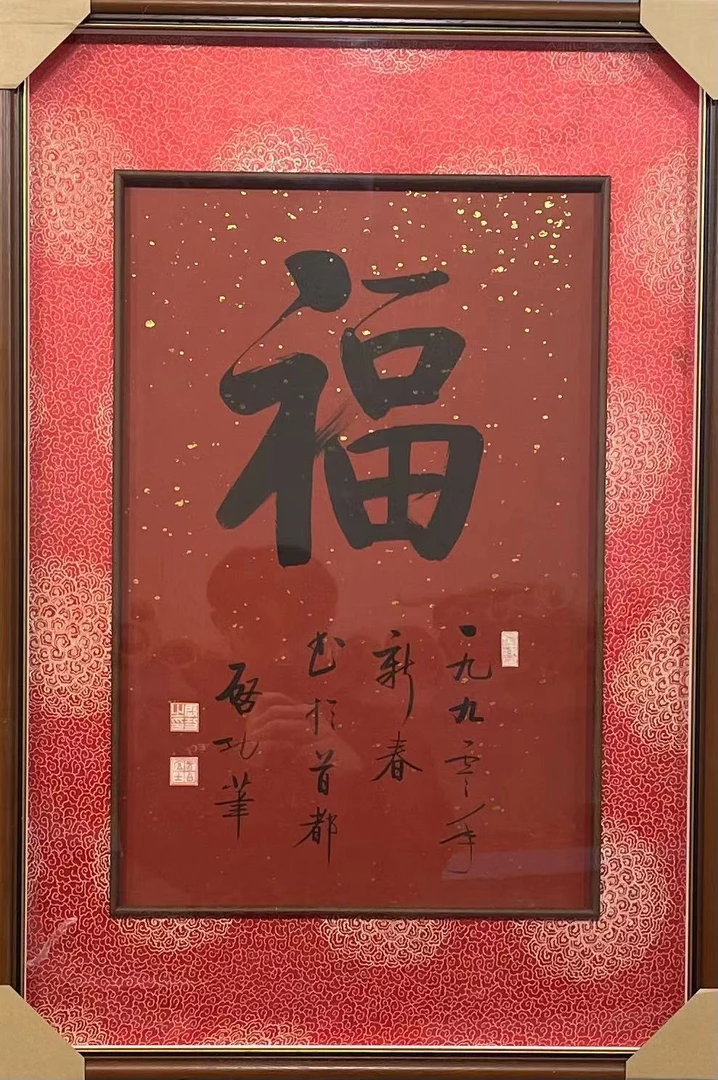 福
一九九零年
新春
书于首都
启功笔